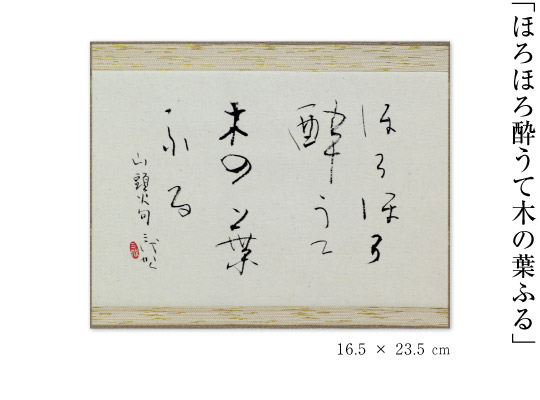 「ほろほろ酔うて木の葉ふる」
ほろほろ
酔うて
木の葉
ふる
山頭火句
16.5 × 23.5 cm